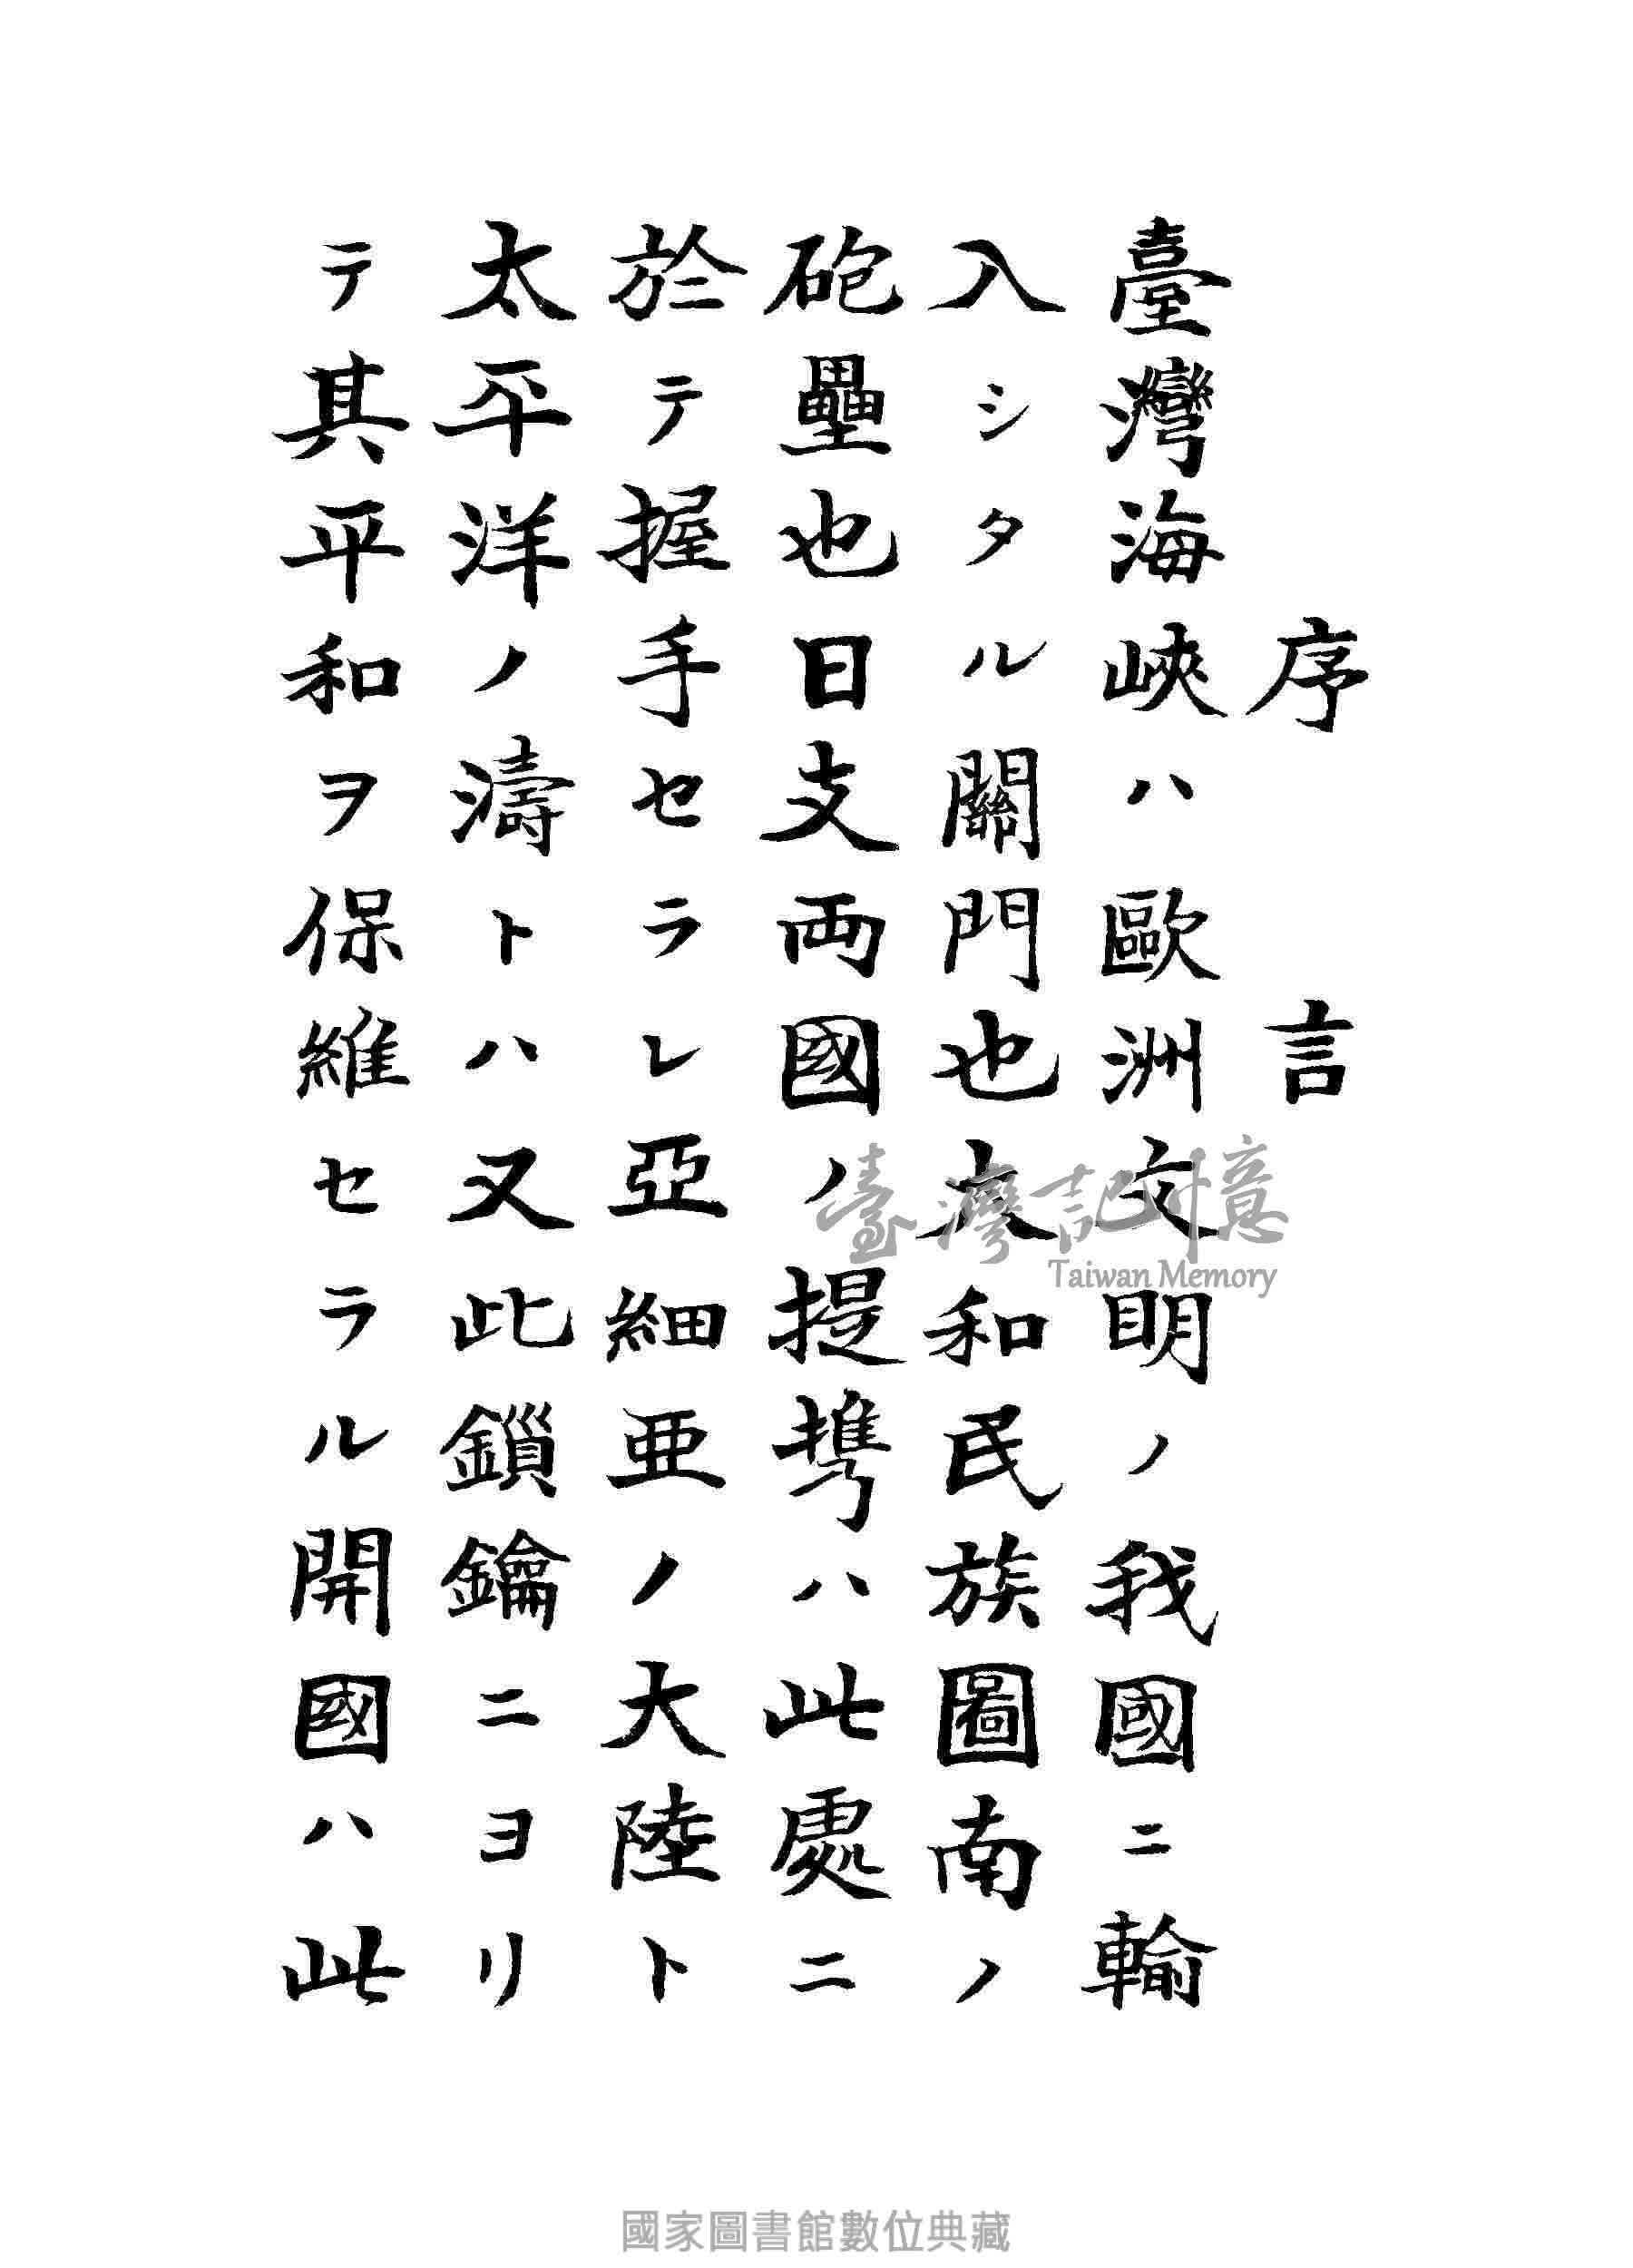 序言
臺灣海峽ハ歐洲文明ノ我國ニ輸
入シタル關門也大和民族圖南ノ
砲壘也日支両國ノ提携ハ此處ニ
於テ握手セラレ亞細亜ノ大陸ト
太平洋ノ濤トハ又此鎖鑰ニヨリ
テ其平和ヲ保維セラル開國ハ此
臺灣記憶
Taiwan Memory
國家圖書館數位典藏